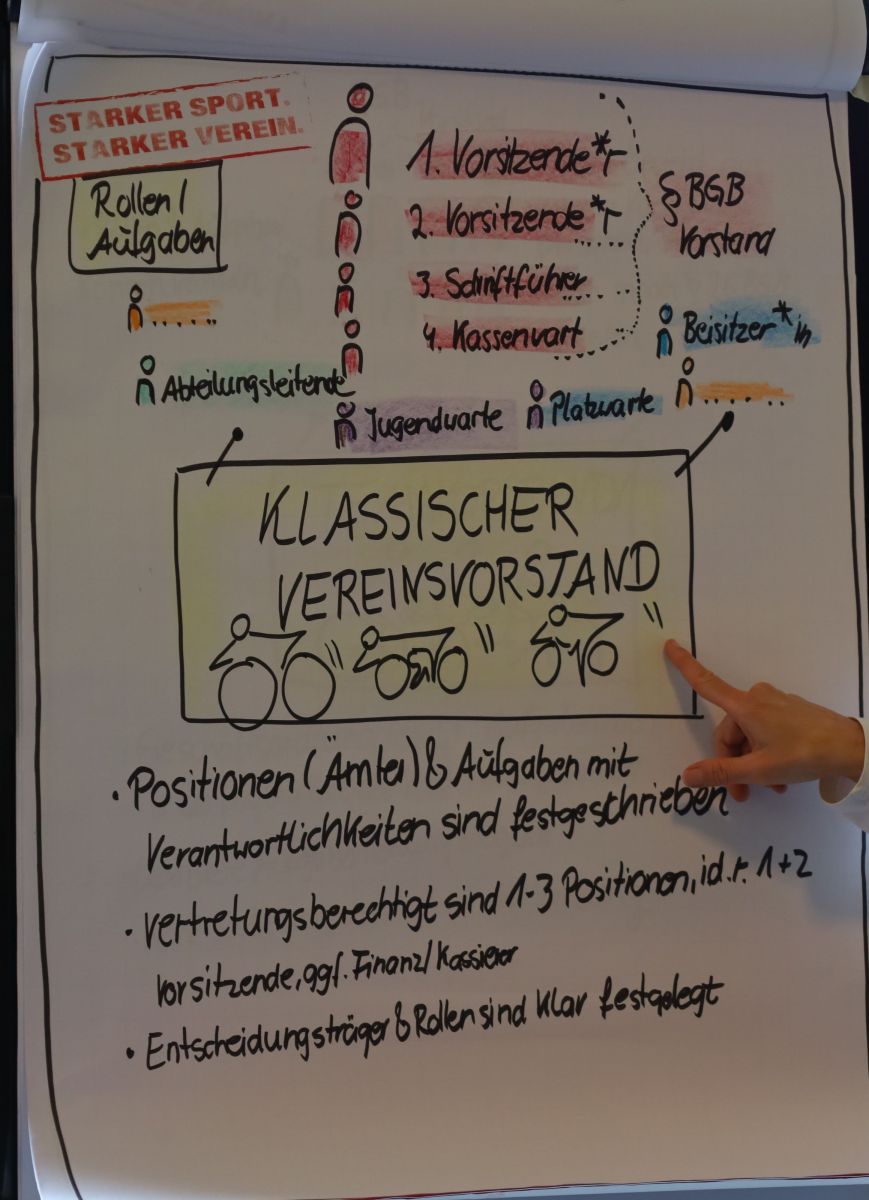 STARKER SPORT.
STARKER VEREIN.
Rollen/
Aufgaben
1. Vorsitzende*r
2. Vorsitzende*r
3. Schriftführer
4. Kassenwart
§ BGB
Vorstand
Beisitzer*in
Abteilungsleitende
Jugendwarte
Platzwarte
KLASSISCHER
VEREINSVORSTAND
• Positionen (Ämter) & Aufgaben mit
Verantwortlichkeiten sind festgeschrieben
• Vertretungsberechtigt sind 1-3 Positionen, i.d.r. 1+2
Vorsitzende, ggf. Finanz/Kassierer
• Entscheidungsträger & Rollen sind klar festgelegt